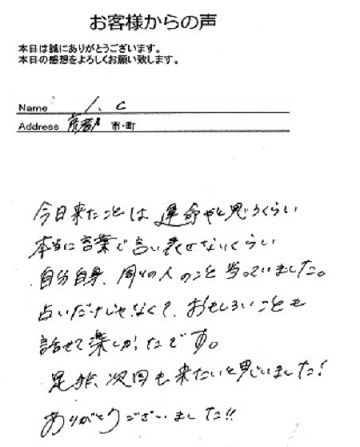 お客様からの声
本日は誠にありがとうございます。
本日の感想をよろしくお願い致します。
Name I. C
Address 彦根 市・町
今日来たことは運命やと思うくらい
本当に言葉で言い表せないくらい
自分自身、周りの人のこと当っていました。
占いだけじゃなくて、おもしろいことも
話せて楽しかったです。
是非、次回も来たいと思いました!
ありがとうございました!!